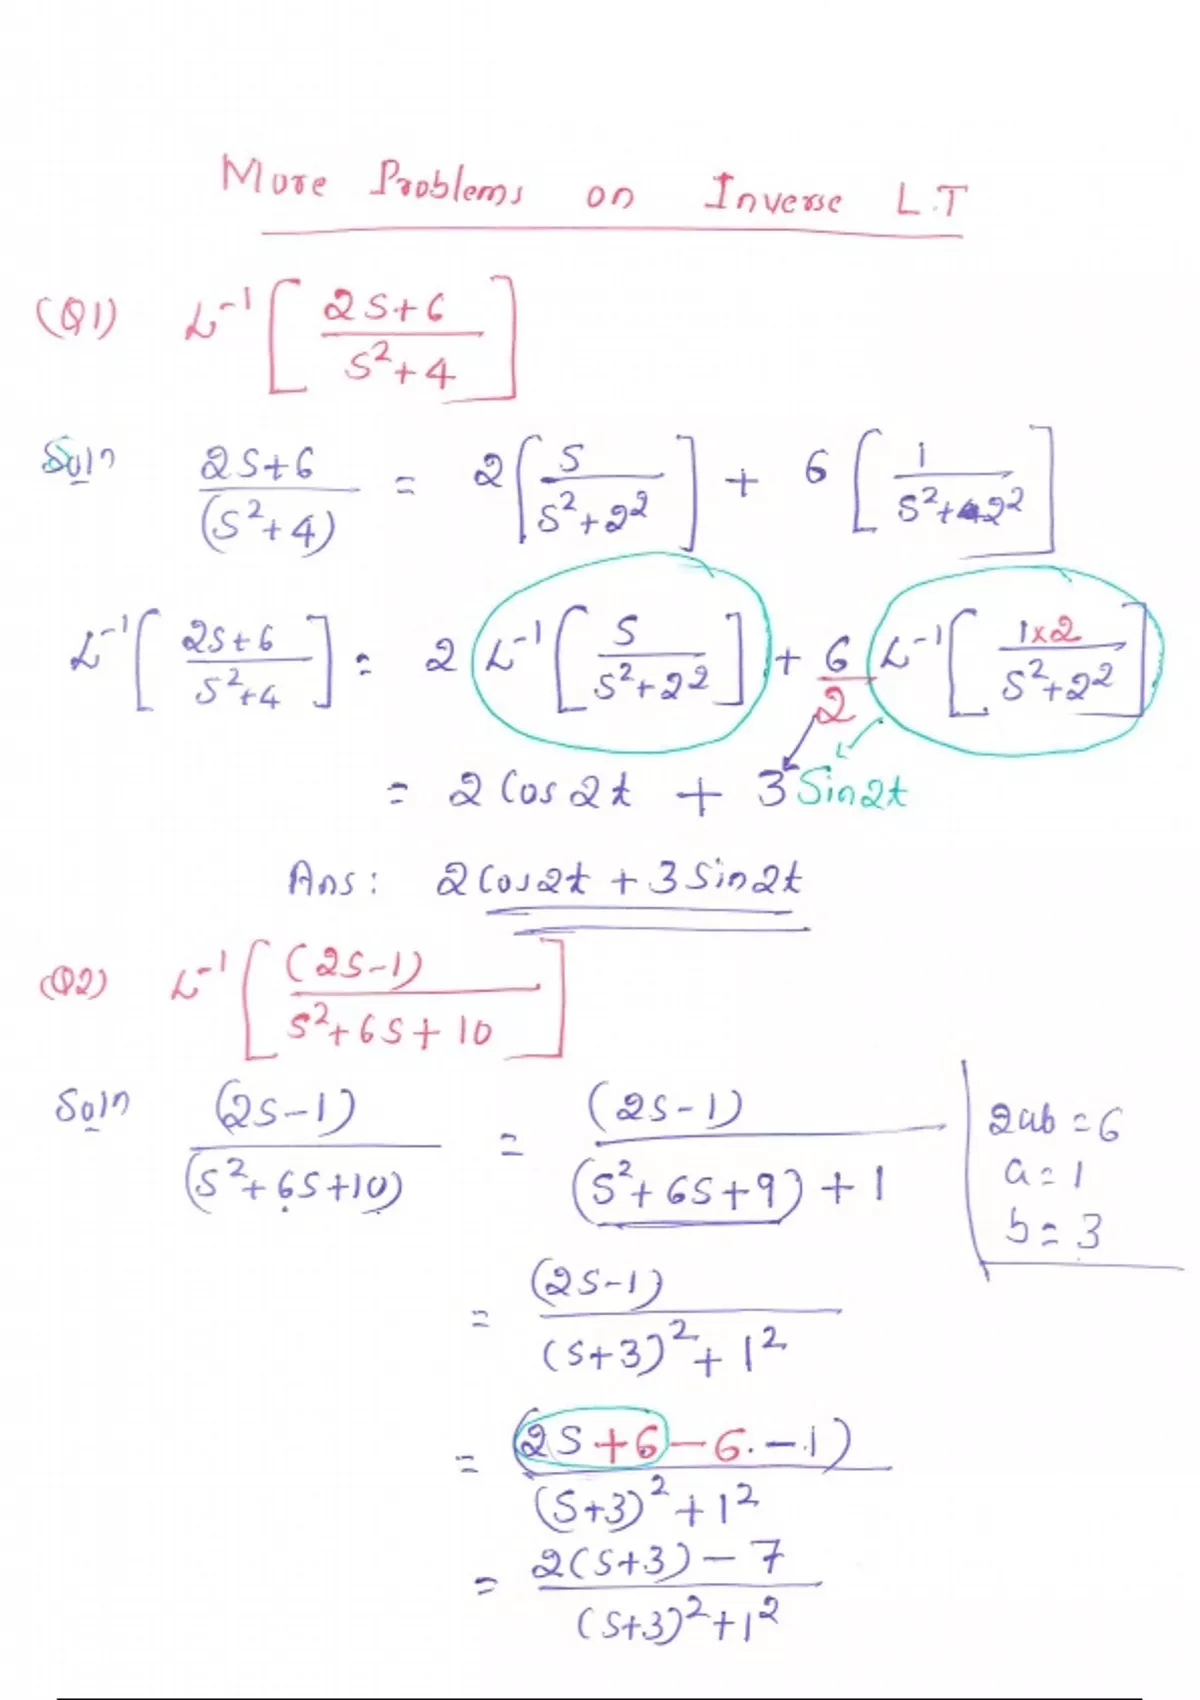 More Problems on Inverse L.T
(Q1) L⁻¹ [ (2s+6)/(s²+4) ]
Soln (2s+6)/(s²+4) = 2 [ s/(s²+2²) ] + 6 [ 1/(s²+2²) ]
L⁻¹ [ (2s+6)/(s²+4) ] = 2 L⁻¹ [ s/(s²+2²) ] + 6/2 L⁻¹ [ (1×2)/(s²+2²) ]
= 2 Cos 2t + 3 Sin2t
Ans: 2Cos2t + 3Sin2t
(Q2) L⁻¹ [ (2s-1)/(s²+6s+10) ]
Soln (2s-1)/(s²+6s+10) = (2s-1)/((s²+6s+9)+1)
2ab = 6
a = 1
b = 3
= (2s-1)/((s+3)²+1²)
= (2s+6-6-1)/((s+3)²+1²)
= (2(s+3)-7)/((s+3)²+1²)